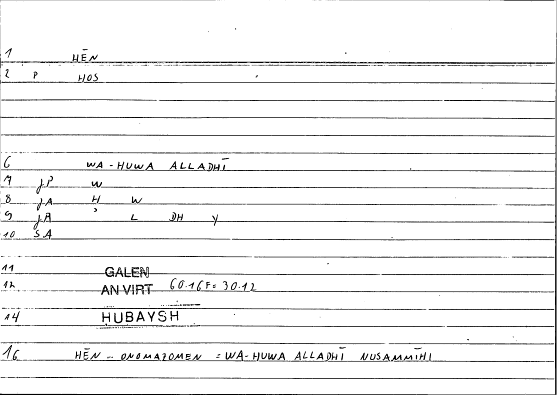 1 HĒN
2 P HOS
6 WA-HUWA ALLADHĪ
7 JP W
8 JA H W
9 JA ' L DH Y
10 SA
11 GALEN
12 AN VIRT 60.16F = 30.12
14 HUBAYSH
16 HĒN - ONOMAZOMEN = WA-HUWA ALLADHĪ NUSAMMĪHI